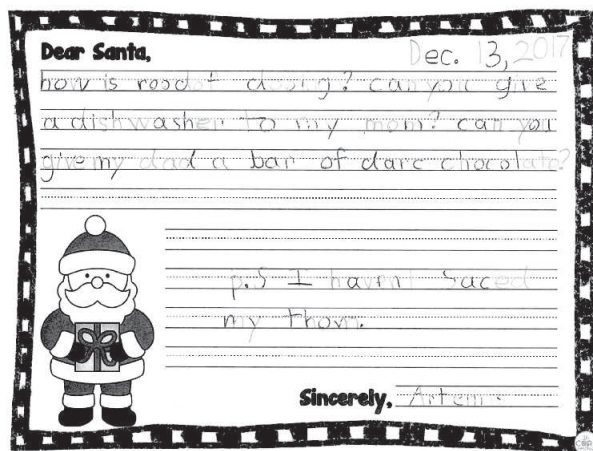 Dear Santa, Dec. 13, 2017
how is roodot doing? can you give
a dishwasher to my mom? can you
give my dad a bar of darc chocolate?
p.S I haven't Suced
my thom.
Sincerely, Artem